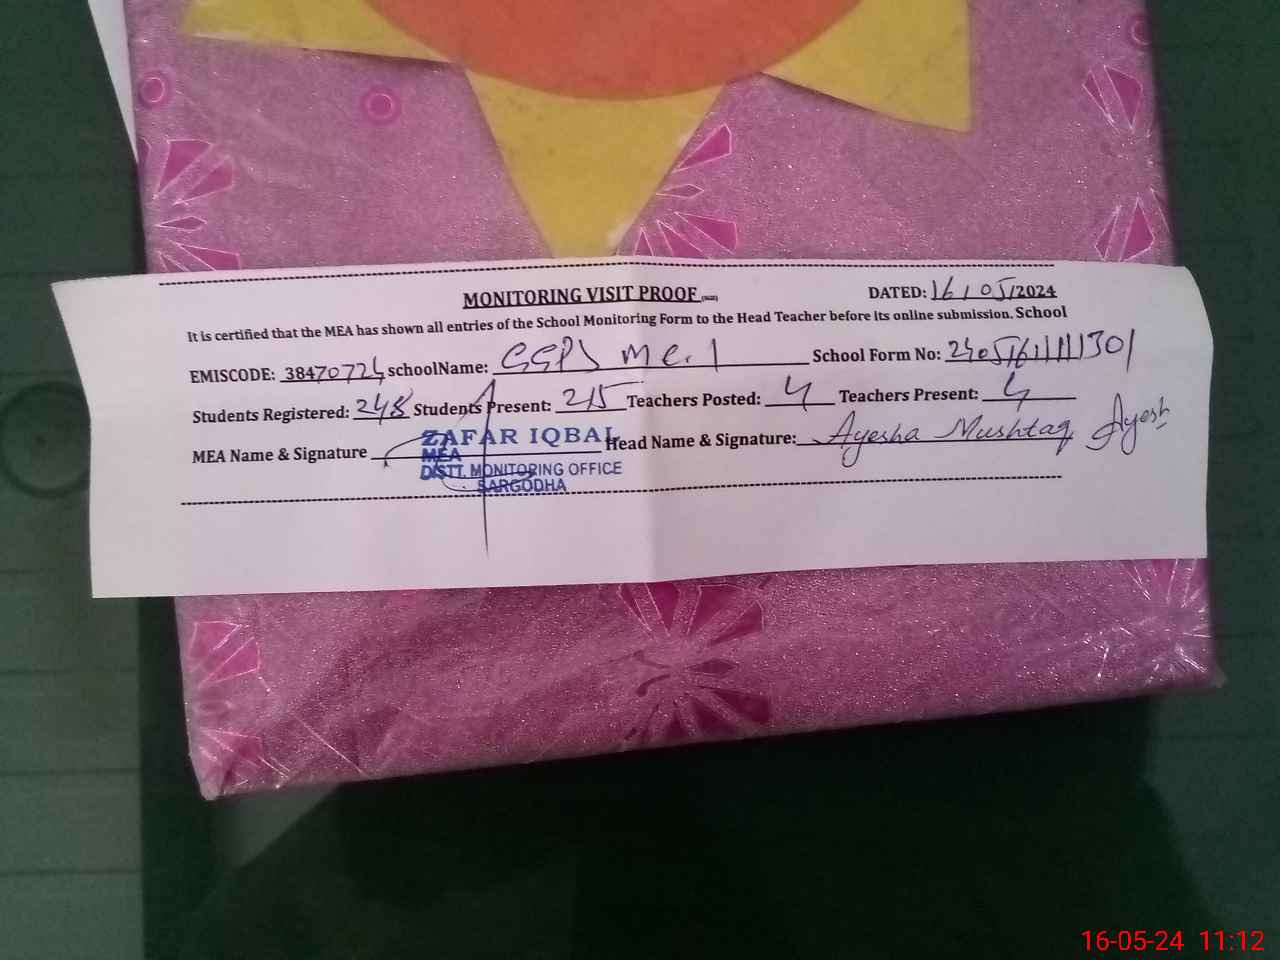 MONITORING VISIT PROOF
DATED: 16/05/2024
It is certified that the MEA has shown all entries of the School Monitoring Form to the Head Teacher before its online submission. School
EMISCODE: 38470724 schoolName: GGPS MC. 1 School Form No:
Students Registered: 248 Students Present: 215 Teachers Posted: 4 Teachers Present: 4
MEA Name & Signature ZAFAR IQBAL Head Name & Signature: Ayesha Mushtaq Ayesh
MEA
DISTT. MONITORING OFFICE
SARGODHA
16-05-24 11:12